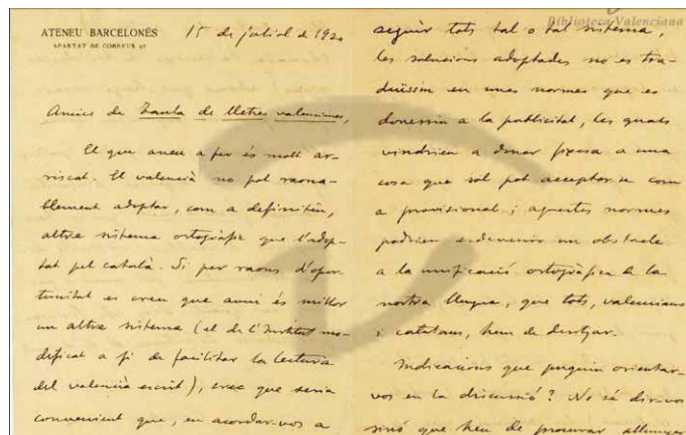 ATENEU BARCELONÉS
APARTAT DE CORREUS
15 de juliol de 1930
Amics de Taula de lletres valencianes,
El que aneu a fer és molt ar-
riscat. El valencià no pot raona-
blement adoptar, com a definitiu,
altre sistema ortogràfic que l'adop-
tat pel català. Si per raons d'opor
tunitat es creu que avui és millor
un altre sistema (el de l'Institut mo-
dificat a fi de facilitar la lectura
del valencià escrit), crec que seria
convenient que, en acordar-vos a
Biblioteca Valenciana
seguir tots tal o tal sistema,
les solucions adoptades no es tra-
duïssin en unes normes que es
donessin a la publicitat, les quals
vindrien a donar fixesa a una
cosa que sol pot acceptar-se com
a provisional; aquestes normes
podrien esdevenir un obstacle
a la unificació ortogràfica de la
nostra llengua, que tots, valencians
i catalans, hem de desitjar.
Indicacions que puguin orientar-
vos en la discussió? No sé dir-vos
sinó que heu de procurar allunyar